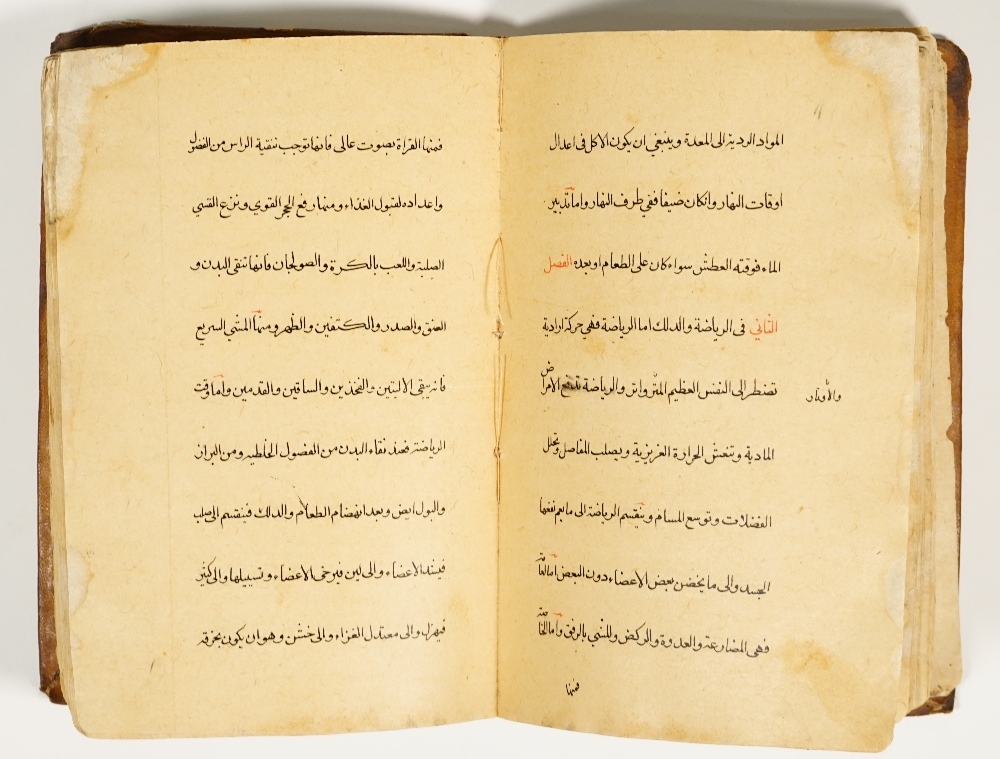 المواد الردية الى المعدة وينبغي ان يكون الاكل في اعدال
اوقات النهار وان كان ضيفا ففي طرف النهار واما تدبير
الماء فوقته العطش سواء كان على الطعام او بعده الفصل
الثاني في الرياضة والدلك اما الرياضة فهي حركة ارادية
تضطر الى النفس العظيم المتواتر والرياضة تدفع الامراض
والأوتار
المادية وتنعش الحرارة الغريزية ويصلب المفاصل وتحلل
الفضلات وتوسع المسام وينقسم الرياضة الى ما يعم نفعها
الجسد والى ما يخص بعض الاعضاء دون البعض اما العامة
فهي المصارعة والعدوة والركض والمشي بالرفق واما الخاصة
فمنها
فمنها القراة بصوت عالى فانها توجب تنقية الراس من الفضول
واعداده لقبول الغذاء ومنها رفع الحجر القوي ونزع القسي
الصلبة واللعب بالكرة والصولجان فانها تنقى البدن و
العنق والصدر والكتفين والظهر ومنها المشي السريع
فانه ينقى الاليتين والفخذين والساقين والقدمين واما وقت
الرياضة فعند نقاء البدن من الفضول الخلطيه ومن البراز
والبول ايض وبعد انهضام الطعام والدلك فينقسم الى صلب
فيشد الاعضاء والى لين فيرخى الاعضاء وتسييلها والى كثير
فيهزل والى معتدل الغزاء والى خشن وهو ان يكون بخرقه